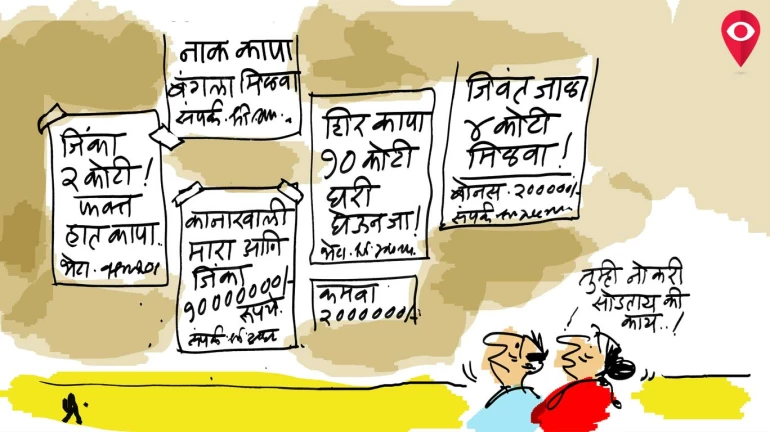 नाक कापा
बंगला मिळवा
संपर्क.
जिंका
२ कोटी!
फक्त
हात कापा..
भेटा.
कानाखाली
मारा आणि
जिंका
१०००००००/-
रूपये.
संपर्क.
शिर कापा
१० कोटी
घरी
घेऊन जा!
भेटा.
कमवा
२००००००/-
जिवंत जाळा
४ कोटी
मिळवा!
बोनस. २०००००/-
संपर्क
तुम्ही नोकरी
सोडताय की
काय..!